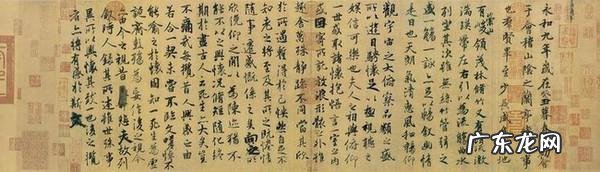 永和九年歲在癸丑暮春之初會
于會稽山陰之蘭亭脩稧事
也羣賢畢至少長咸集此地
有崇山峻領茂林脩竹又有清流激
湍暎帶左右引以為流觴曲水
列坐其次雖無絲竹管弦之
盛一觴一詠亦足以暢敘幽情
是日也天朗氣清惠風和暢仰
觀宇宙之大俯察品類之盛
所以遊目騁懷足以極視聽之
娛信可樂也夫人之相與俯仰
一世或取諸懷抱悟言一室之內
或因寄所託放浪形骸之外雖
趣舍萬殊靜躁不同當其欣
於所遇蹔得於己怏然自足不
知老之將至及其所之既惓情
隨事遷感慨係之矣向之所
欣俛仰之閒以為陳迹猶不
能不以之興懷況脩短隨化終
期於盡古人云死生亦大矣豈
不痛哉每攬昔人興感之由
若合一契未嘗不臨文嗟悼不
能喻之於懷固知一死生為虛
誕齊彭殤為妄作後之視今
亦由今之視昔悲夫故列
敘時人錄其所述雖世殊事
異所以興懷其致一也後之攬
者亦將有感於斯文
广东龙网